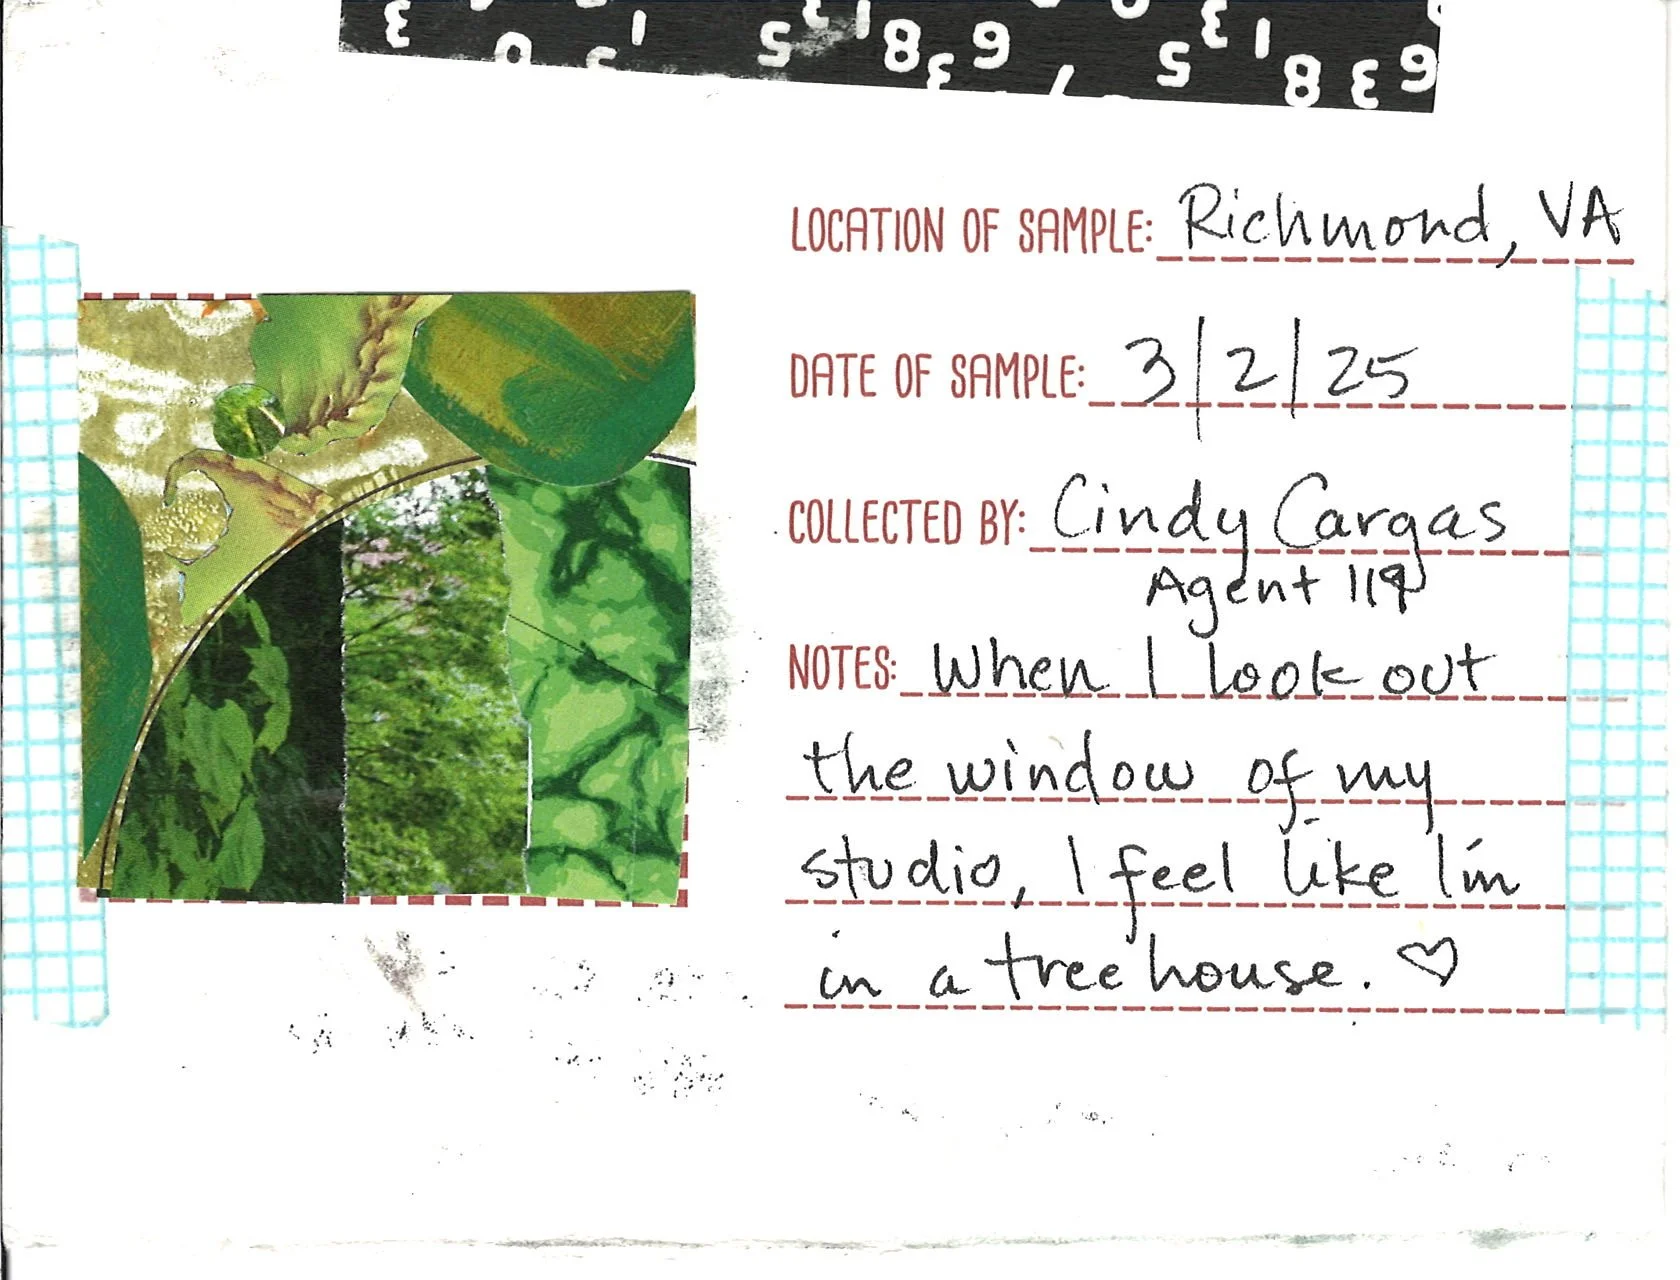 LOCATION OF SAMPLE: Richmond, VA
DATE OF SAMPLE: 3/2/25
COLLECTED BY: Cindy Cargas
Agent 119
NOTES: When I look out
the window of my
studio, I feel like I'm
in a treehouse. ♡